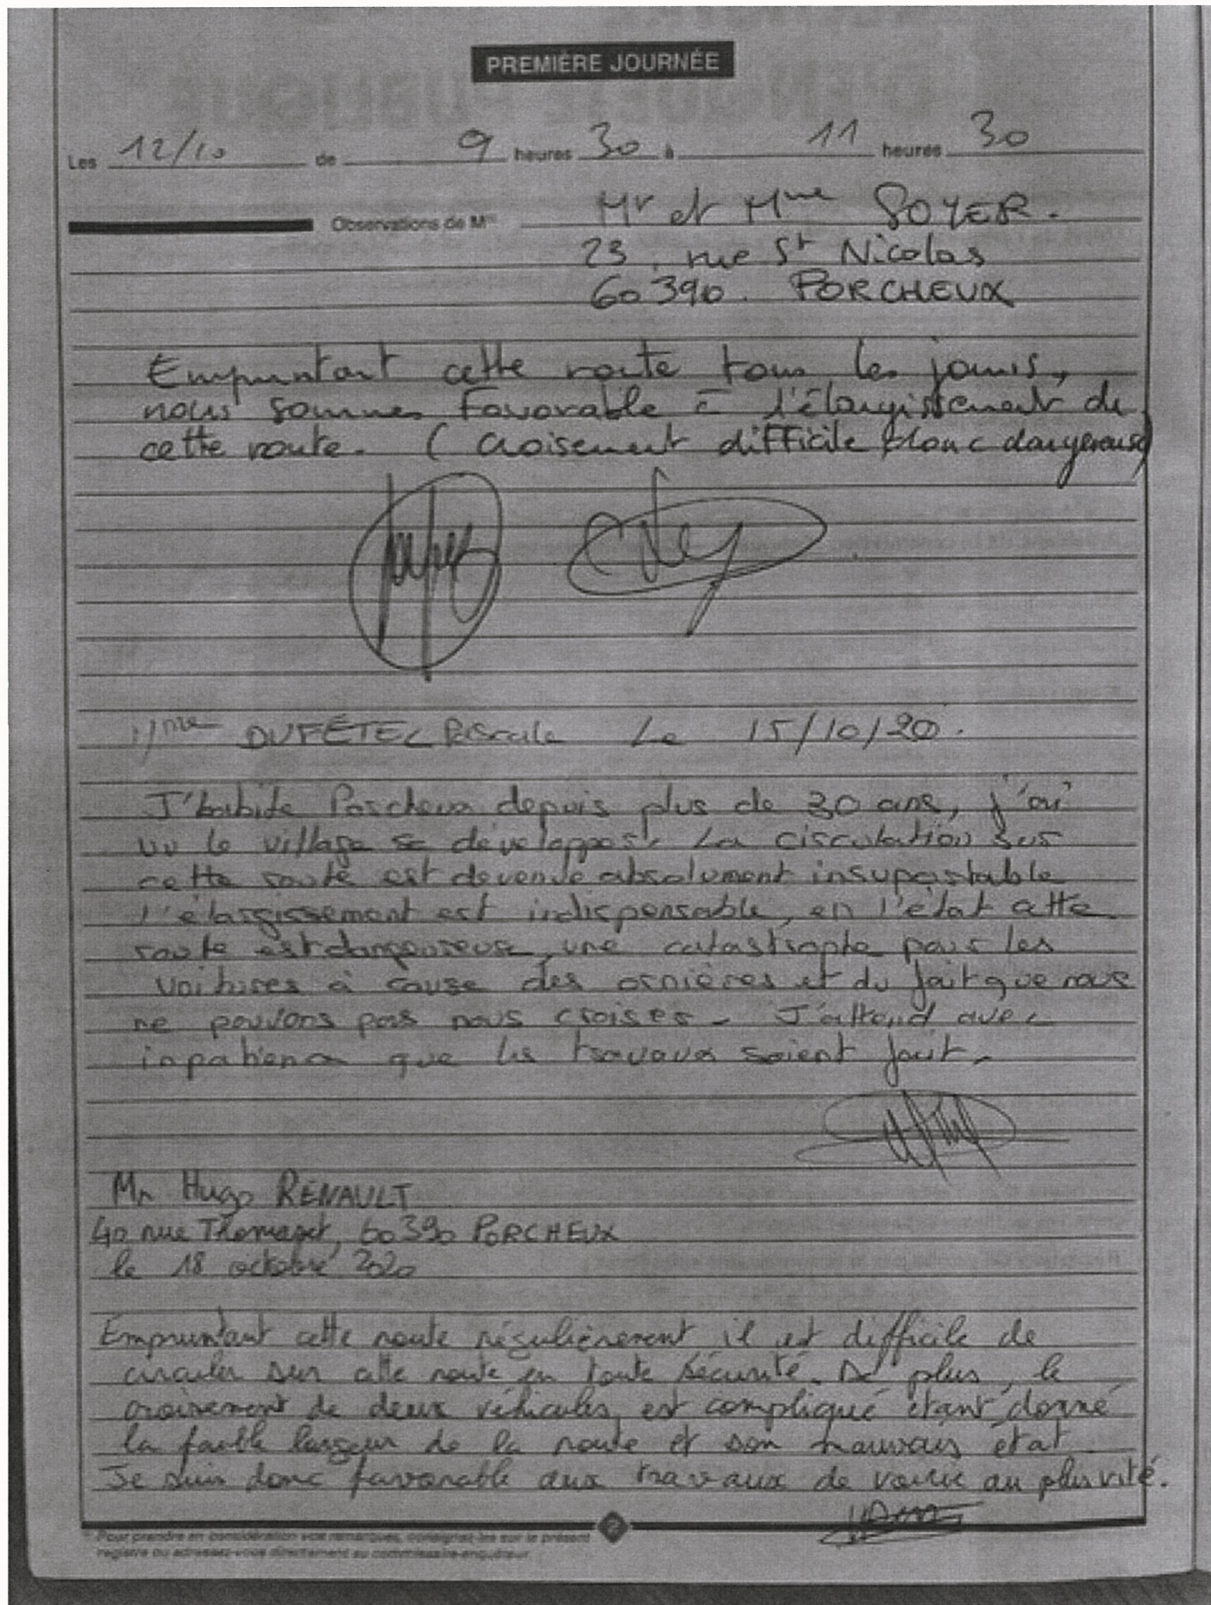 PREMIÈRE JOURNÉE
Les 12/10 de 9 heures 30 à 11 heures 30
Observations de M Mr et Mme SOYER.
23, rue St Nicolas
60390. PORCHEUX
Empruntant cette route tous les jours,
nous sommes favorable à l'élargissement de
cette route. (Croisement difficile donc dangereuse)
Mme DUFÉTEL Pascale Le 15/10/20.
J'habite Porcheux depuis plus de 30 ans, j'ai
vu le village se développer. La circulation sur
cette route est devenue absolument insupportable
l'élargissement est indispensable, en l'état cette
route est dangereuse, une catastrophe pour les
voitures à cause des ornières et du fait que nous
ne pouvons pas nous croiser. J'attend avec
inpatience que les travaux soient fait.
Mr Hugo RENAULT
40 rue Thomasset, 60390 PORCHEUX
le 18 octobre 2020
Empruntant cette route régulièrement il est difficile de
circuler sur cette route en toute sécurité. De plus, le
croisement de deux véhicules est compliqué étant donné
la faible largeur de la route et son mauvais état.
Je suis donc favorable aux travaux de voirie au plus vite.
2
Pour prendre en considération vos remarques, consignez-les sur le présent
registre ou adressez-vous directement au commissaire-enquêteur.